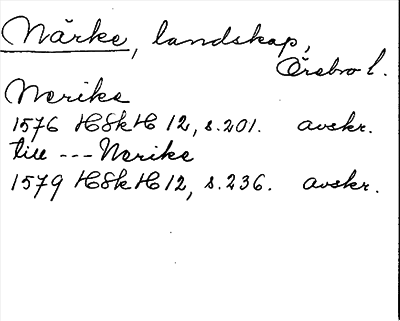 Närke, landskap,
Örebro l.
Nerike
1576 HSkH 12, s. 201. avskr.
till --- Nerike
1579 HSkH 12, s. 236. avskr.